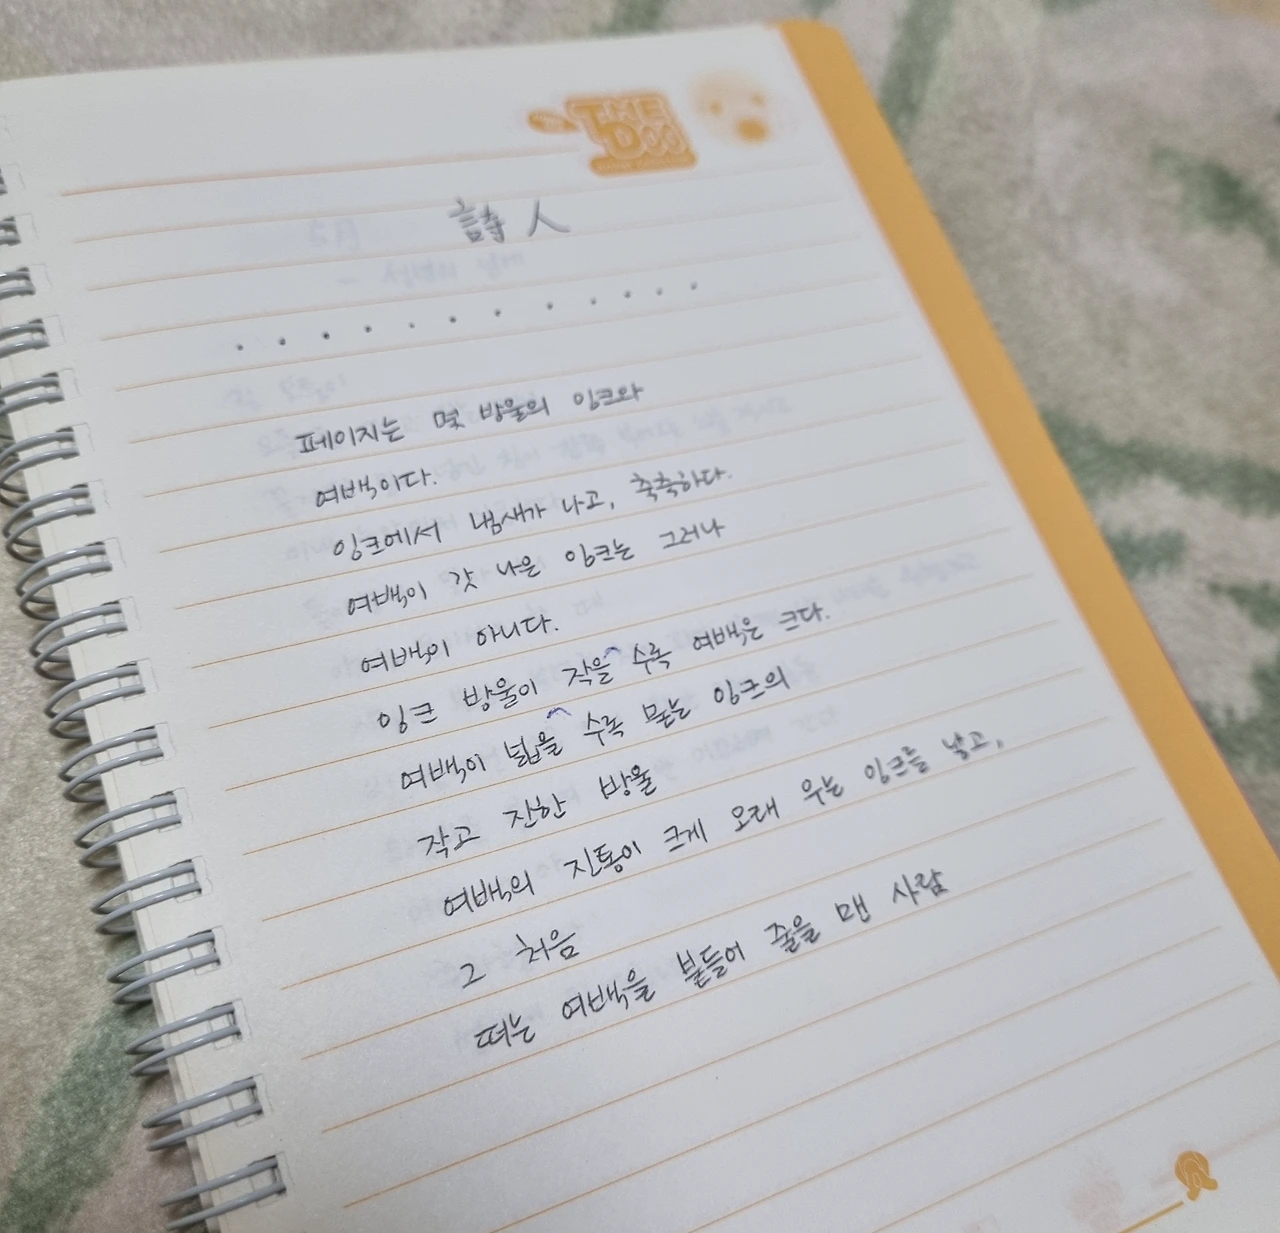 THE
DOG
詩人
. . . . . . . . . . .
페이지는 몇 방울의 잉크와
여백이다.
잉크에서 냄새가 나고, 축축하다.
여백이 갓 나은 잉크는 그러나
여백이 아니다.
잉크 방울이 작을수록 여백은 크다.
여백이 넓을수록 묻는 잉크의
작고 진한 방울
여백의 진통이 크게 오래 우는 잉크를 낳고,
그 처음
떠는 여백을 붙들어 줄을 맨 사람